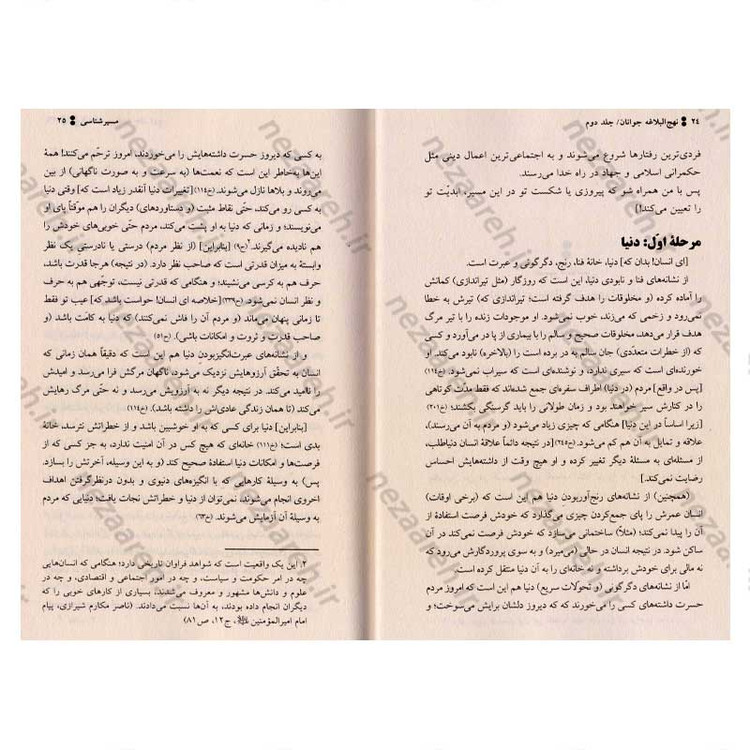 ۲۴ نهج‌البلاغه جوانان/ جلد دوم
فردی‌ترین رفتارها شروع می‌شوند و به اجتماعی‌ترین اعمال دینی مثل
حکمرانی اسلامی و جهاد در راه خدا می‌رسند.
پس با من همراه شو که پیروزی یا شکست تو در این مسیر، ابدیّت تو
را تعیین می‌کند!]
مرحلهٔ اوّل: دنیا
[ای انسان! بدان که] دنیا، خانهٔ فنا، رنج، دگرگونی و عبرت است.
از نشانه‌های فنا و نابودی دنیا، این است که روزگار (مثل تیراندازی) کمانش
را آماده کرده (و مخلوقات را هدف گرفته است؛ تیراندازی که) تیرش به خطا
نمی‌رود و زخمی که می‌زند، خوب نمی‌شود. او موجودات زنده را با تیر مرگ
هدف قرار می‌دهد، مخلوقات صحیح و سالم را با بیماری از پا در می‌آورد و کسی
که (از خطرات متعدّدی) جان سالم به در برده است را (بالاخره) نابود می‌کند. او
خورنده‌ای است که سیری ندارد، و نوشنده‌ای است که سیراب نمی‌شود. (خ۱۱۴)
[پس در واقع] مردم (در دنیا) اطراف سفره‌ای جمع شده‌اند که فقط مدّت کوتاهی
را در کنارش سیر خواهند بود و زمان طولانی را باید گرسنگی بکشند؛ (خ۲۰۱)
[زیرا اساساً در این دنیا] هنگامی که چیزی زیاد می‌شود (و مردم به آن می‌رسند)،
علاقه و تمایل به آن هم کم می‌شود. (ح۲۴۵)[در نتیجه دائماً علاقهٔ انسان دنیاطلب،
از مسئله‌ای به مسئلهٔ دیگر تغییر کرده و او هیچ وقت از داشته‌هایش احساس
رضایت نمی‌کند.]
(همچنین) از نشانه‌های رنج‌آوربودن دنیا هم این است که (برخی اوقات)
انسان عمرش را پای جمع‌کردن چیزی می‌گذارد که خودش فرصت استفادهٔ از
آن را پیدا نمی‌کند؛ (مثلاً) ساختمانی می‌سازد که خودش فرصت نمی‌کند در آن
ساکن شود. در نتیجه انسان در حالی (می‌میرد) و به سوی پروردگارش می‌رود که
نه مالی برای خودش برداشته و نه خانه‌ای را به آن دنیا منتقل کرده است.
امّا از نشانه‌های دگرگونی (و تحوّلات سریع) دنیا هم این است که امروز مردم
حسرت داشته‌های کسی را می‌خورند که که دیروز دلشان برایش می‌سوخت؛ و
مسیرشناسی ۲۵
به کسی که دیروز حسرت داشته‌هایش را می‌خوردند، امروز ترحّم می‌کنند! همهٔ
این‌ها به‌خاطر این است که نعمت‌ها (به سرعت و به صورت ناگهانی) از بین
می‌روند و بلاها نازل می‌شوند. (خ۱۱۴)[تغییرات دنیا آنقدر زیاد است که] وقتی دنیا
به کسی رو می‌کند، حتّی نقاط مثبت (و دستاوردهای) دیگران را هم موقّتاً پای او
می‌نویسند؛ و زمانی که دنیا به او پشت می‌کند، مردم حتّی خوبی‌های خودش را
هم نادیده می‌گیرند.۲(ح۹) [بنابراین] (از نظر مردم) درستی یا نادرستی یک نظر
وابستهٔ به میزان قدرتی است که صاحب نظر دارد. (در نتیجه) هرجا قدرت باشد،
حرف هم به کرسی می‌نشیند؛ و هنگامی که قدرتی نیست، توجّهی هم به حرف
و نظر انسان نمی‌شود. (ح۳۳۹)[خلاصه ای انسان! حواست باشد که] عیب تو فقط
تا زمانی پنهان می‌ماند (و مردم آن را فاش نمی‌کنند) که دنیا به کامَت باشد (و
صاحب قدرت و ثروت و امکانات باشی). (ح۵۱)
و از نشانه‌های عبرت‌انگیزبودن دنیا هم این است که دقیقاً همان زمانی که
انسان به تحقّق آرزوهایش نزدیک می‌شود، ناگهان مرگش فرا می‌رسد و امیدش
را ناامید می‌کند. در نتیجه دیگر نه به آرزویش می‌رسد و نه حتّی مرگ رهایش
می‌کند (تا همان زندگی عادی‌اش را داشته باشد). (خ۱۱۴)
[بنابراین] دنیا برای کسی که به او خوشبین باشد و از خطراتش نترسد، خانهٔ
بدی است؛ (خ۱۱۱) خانه‌ای که هیچ کس در آن امنیت ندارد، به جز کسی که از
فرصت‌ها و امکانات دنیا استفادهٔ صحیح کند (و به این وسیله، آخرتش را بسازد.
پس) به وسیلهٔ کارهایی که با انگیزه‌های دنیوی و بدون درنظرگرفتن اهداف
اخروی انجام می‌شوند، نمی‌توان از دنیا و خطراتش نجات یافت؛ دنیایی که مردم
به وسیلهٔ آن آزمایش می‌شوند. (خ۶۳)
۲. آین یک واقعیت است که شواهد فراوان تاریخی دارد؛ هنگامی که انسان‌هایی
چه در امر حکومت و سیاست، و چه در امور اجتماعی و اقتصادی، و چه در
علوم و دانش‌ها مشهور و معروف می‌شدند، بسیاری از کارهای خوبی را که
دیگران انجام داده بودند، به آن‌ها نسبت می‌دادند. (ناصر مکارم شیرازی، پیام
امام امیرالمؤمنین، ج۱۲، ص۸۱)
nezaareh.ir